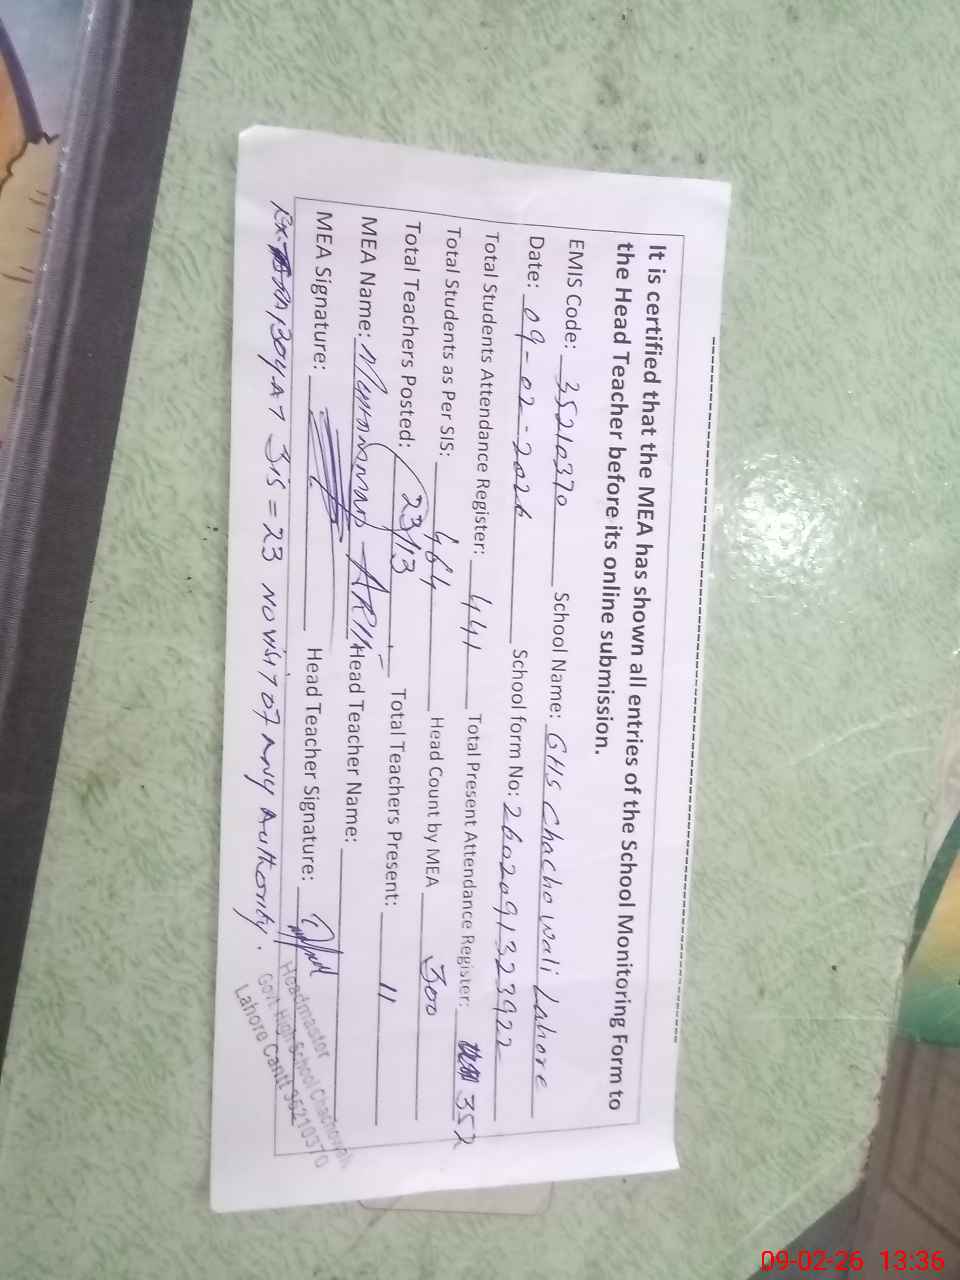 It is certified that the MEA has shown all entries of the School Monitoring Form to
the Head Teacher before its online submission.
EMIS Code: 35210370 School Name: GHS Chachowali Lahore
Date: 09-02-2026 School form No: 260209132392
Total Students Attendance Register: 441 Total Present Attendance Register: 352
Total Students as Per SIS: 464 Head Count by MEA 300
Total Teachers Posted: 23/13 Total Teachers Present: 11
MEA Name: Head Teacher Name:
MEA Signature: Head Teacher Signature:
AT SIS = 23 NO visit of any Authority.
Headmaster
Govt. High School Chachowali
Lahore Cantt 35210370
09-02-26 13:36